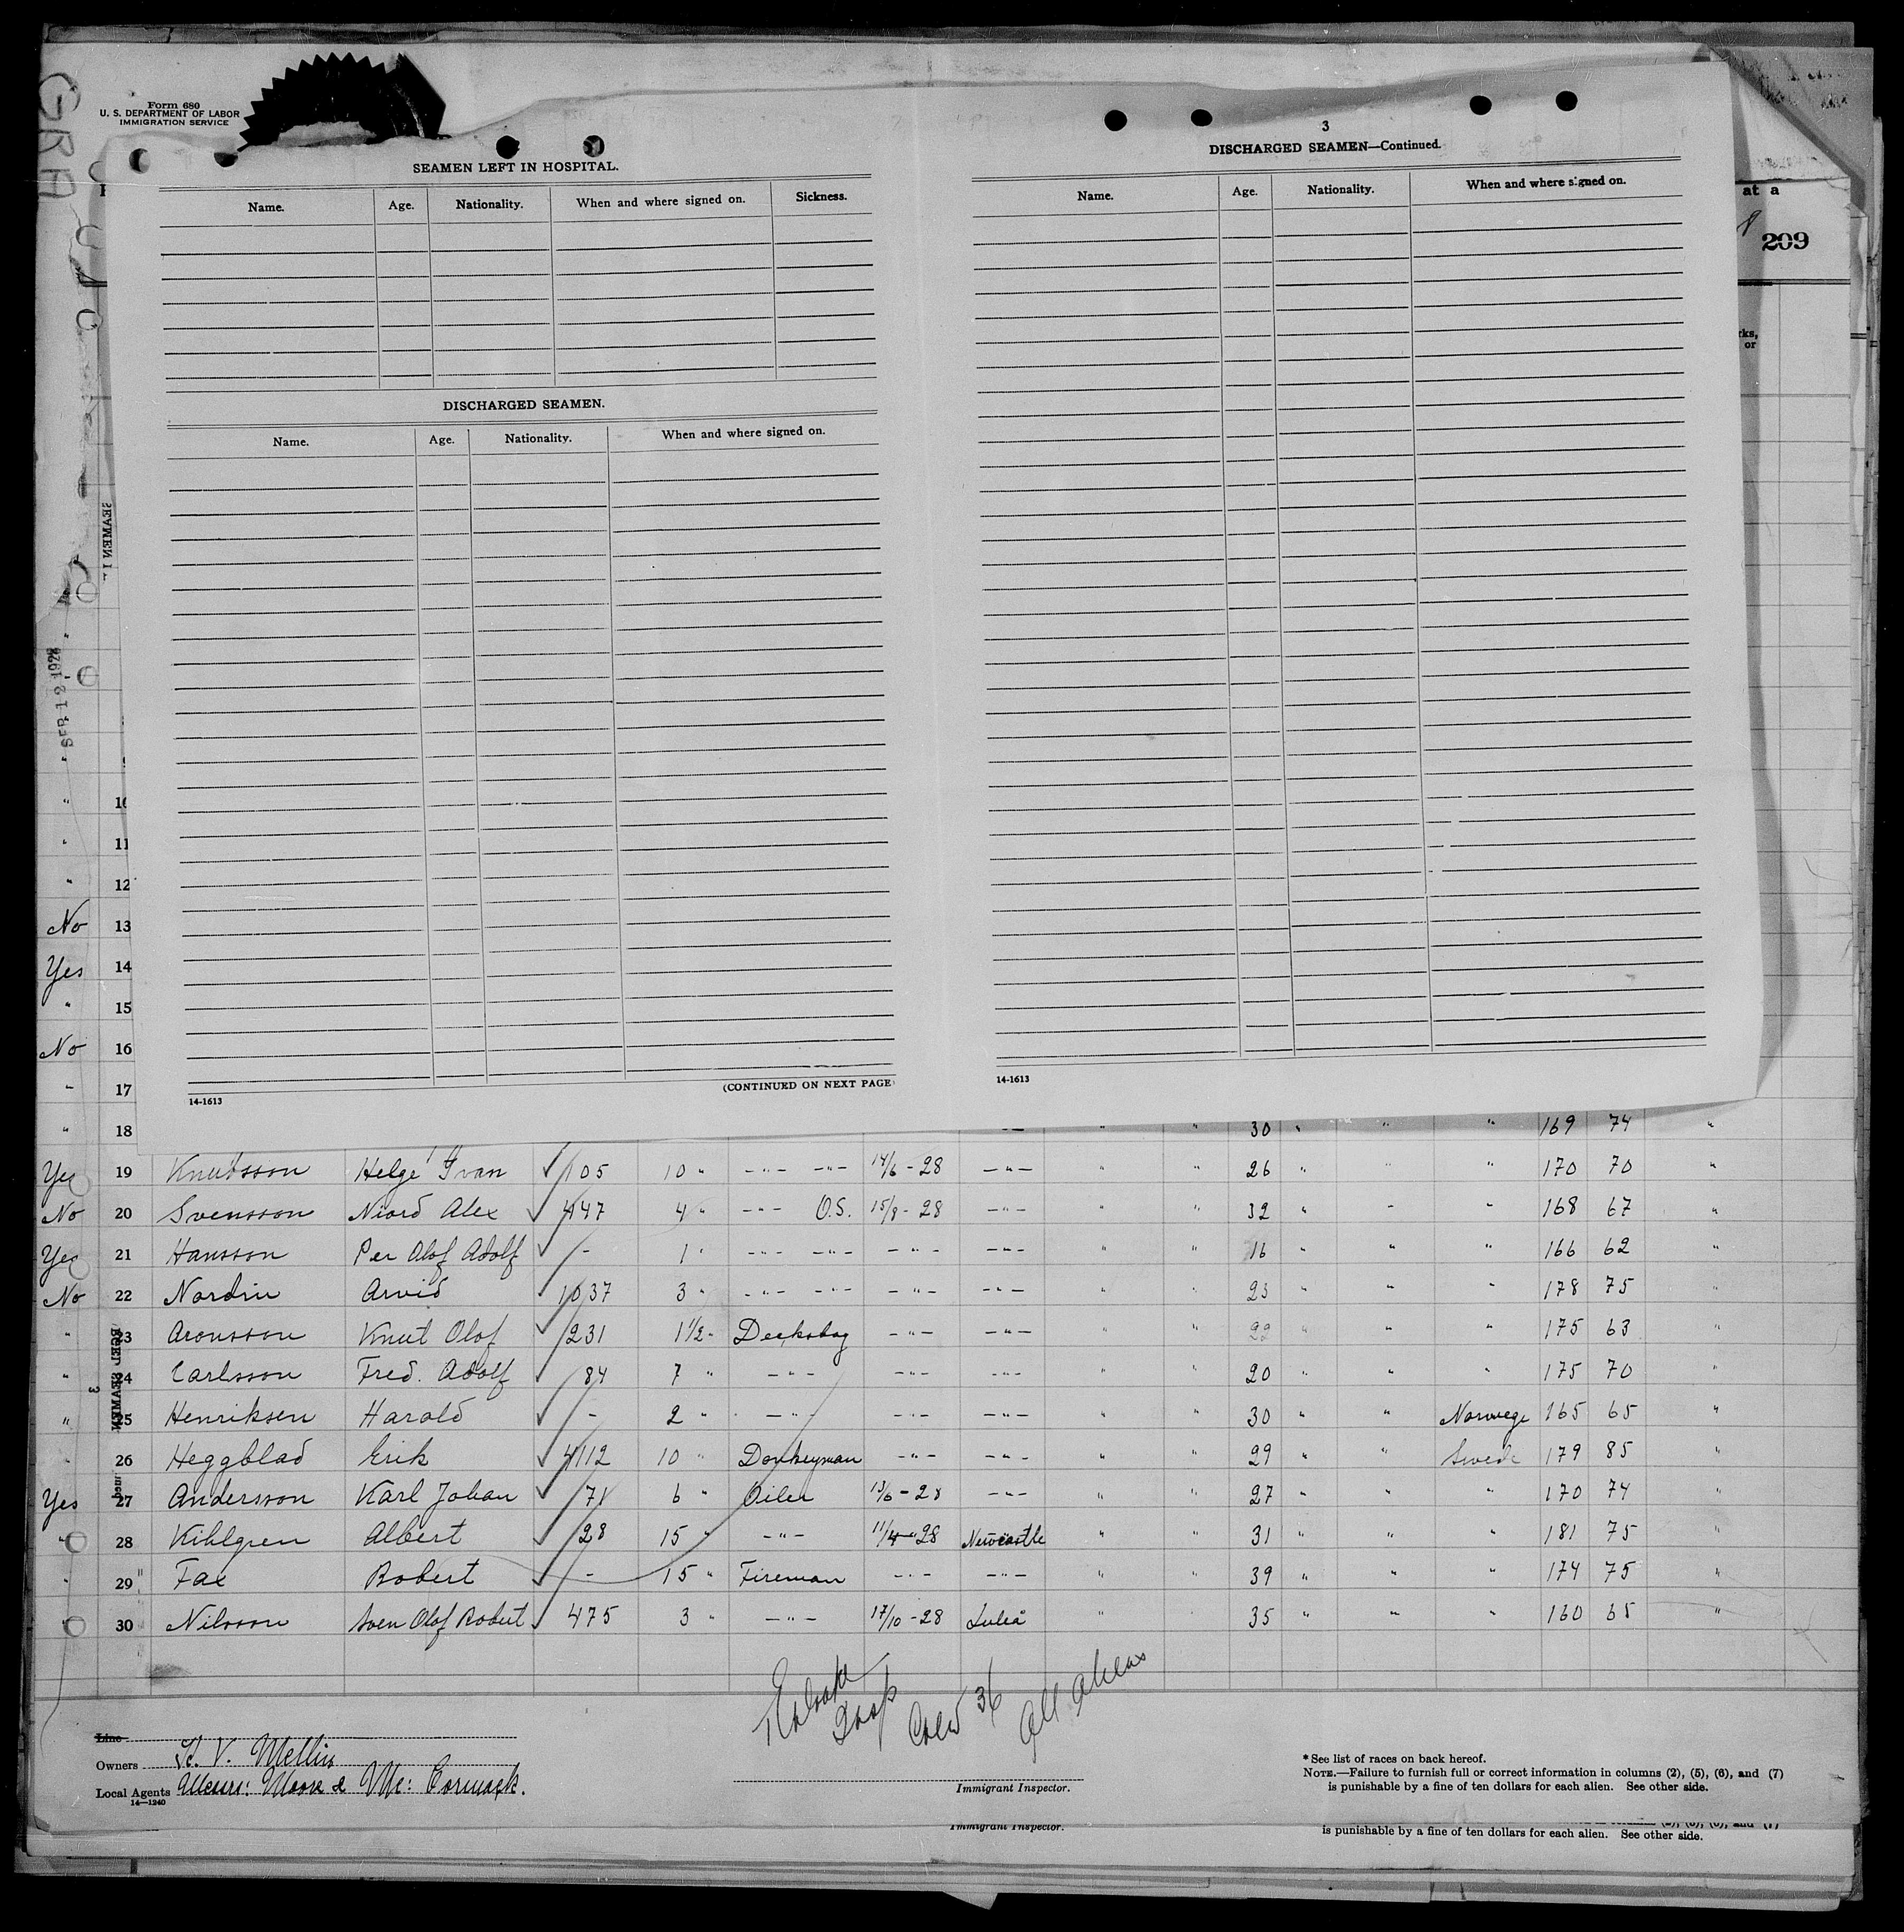 Form 680
U. S. DEPARTMENT OF LABOR
IMMIGRATION SERVICE
SEAMEN LEFT IN HOSPITAL.
Name. Age. Nationality. When and where signed on. Sickness.
DISCHARGED SEAMEN.
Name. Age. Nationality. When and where signed on.
(CONTINUED ON NEXT PAGE
14-1613
3
DISCHARGED SEAMEN—Continued.
Name. Age. Nationality. When and where signed on.
14-1613
at a
209
rks,
or
SEP 12 1928
" 10
" 11
" 12
No 13
Yes 14
" 15
No 16
" 17
" 18 30 " " " 169 74 "
Yes 19 Knutsson Helge Ivan 105 10 " -"- -"- 14/6-28 -"- " " 26 " " " 170 70 "
No 20 Svensson Niord Alex 447 4 " -"- O.S. 15/8-28 -"- " " 32 " " " 168 67 "
Yes 21 Hansson Per Olof Adolf - 1 " -"- -"- -"- -"- " " 16 " " " 166 62 "
No 22 Nordin Arvid 1037 3 " -"- -"- -"- -"- " " 23 " " " 178 75 "
" 23 Aronsson Knut Olof 231 1 1/2 " Decksboy -"- -"- " " 22 " " " 175 63 "
" 24 Carlsson Fred. Adolf 84 7 " -"- -"- -"- " " 20 " " " 175 70 "
" 25 Henriksen Harald - 2 " -"- -"- -"- " " 30 " " Norwege 165 65 "
" 26 Heggblad Erik 4112 10 " Donkeyman -"- -"- " " 29 " " Swede 179 85 "
Yes 27 Andersson Karl Johan 71 6 " Oiler 13/6-28 -"- " " 27 " " " 170 74 "
" 28 Kihlgren Albert 28 15 " -"- 11/4-28 Newcastle " " 31 " " " 181 75 "
" 29 Fae Robert - 15 " Fireman -"- -"- " " 39 " " " 174 75 "
" 30 Nilsson Sven Olof Robert 475 3 " -"- 17/10-28 Luleå " " 35 " " " 160 65 "
Crew 36
All Aliens
Line
Owners H. V. Mellin
Local Agents Messrs: Moore & Mc: Cormack.
14—1240
Immigrant Inspector.
* See list of races on back hereof.
NOTE.—Failure to furnish full or correct information in columns (2), (5), (6), and (7)
is punishable by a fine of ten dollars for each alien. See other side.
Immigrant Inspector.
is punishable by a fine of ten dollars for each alien. See other side.